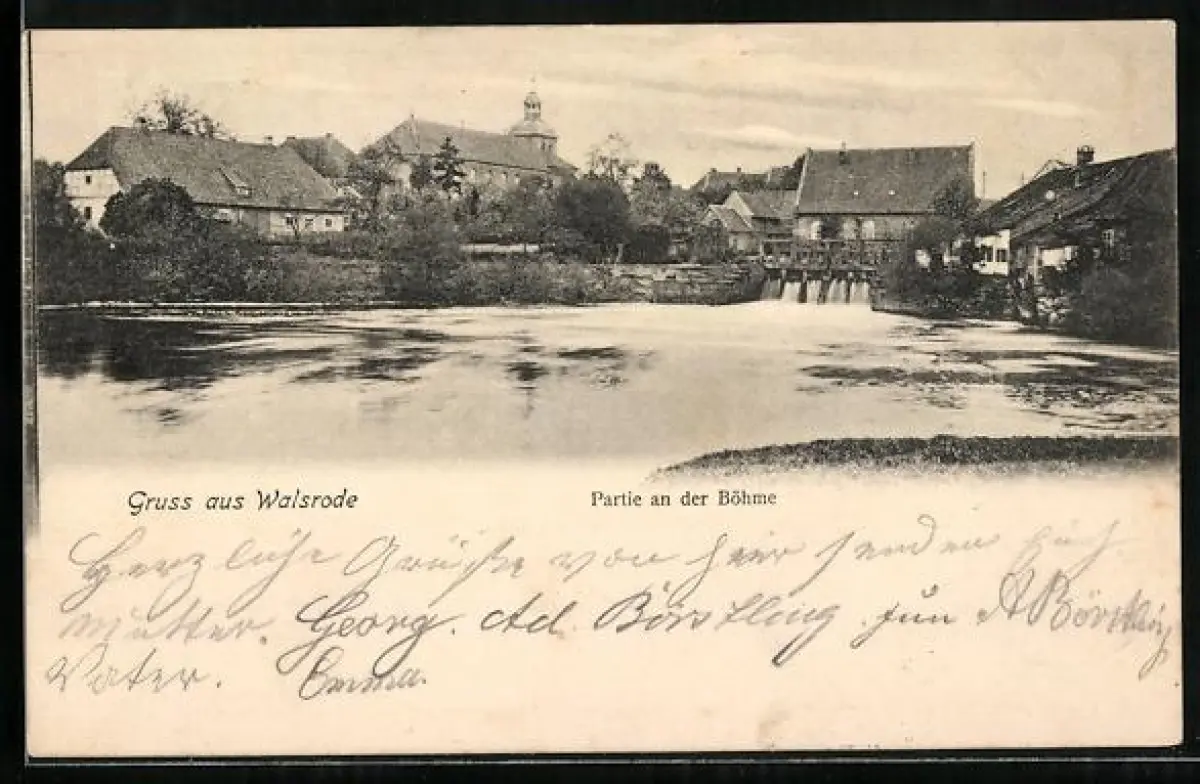 Gruss aus Walsrode
Partie an der Böhme
Herzliche Grüße von hier senden Euch
Mutter. Georg. Ad Börstling jun A Börstling
Vater. Emma.